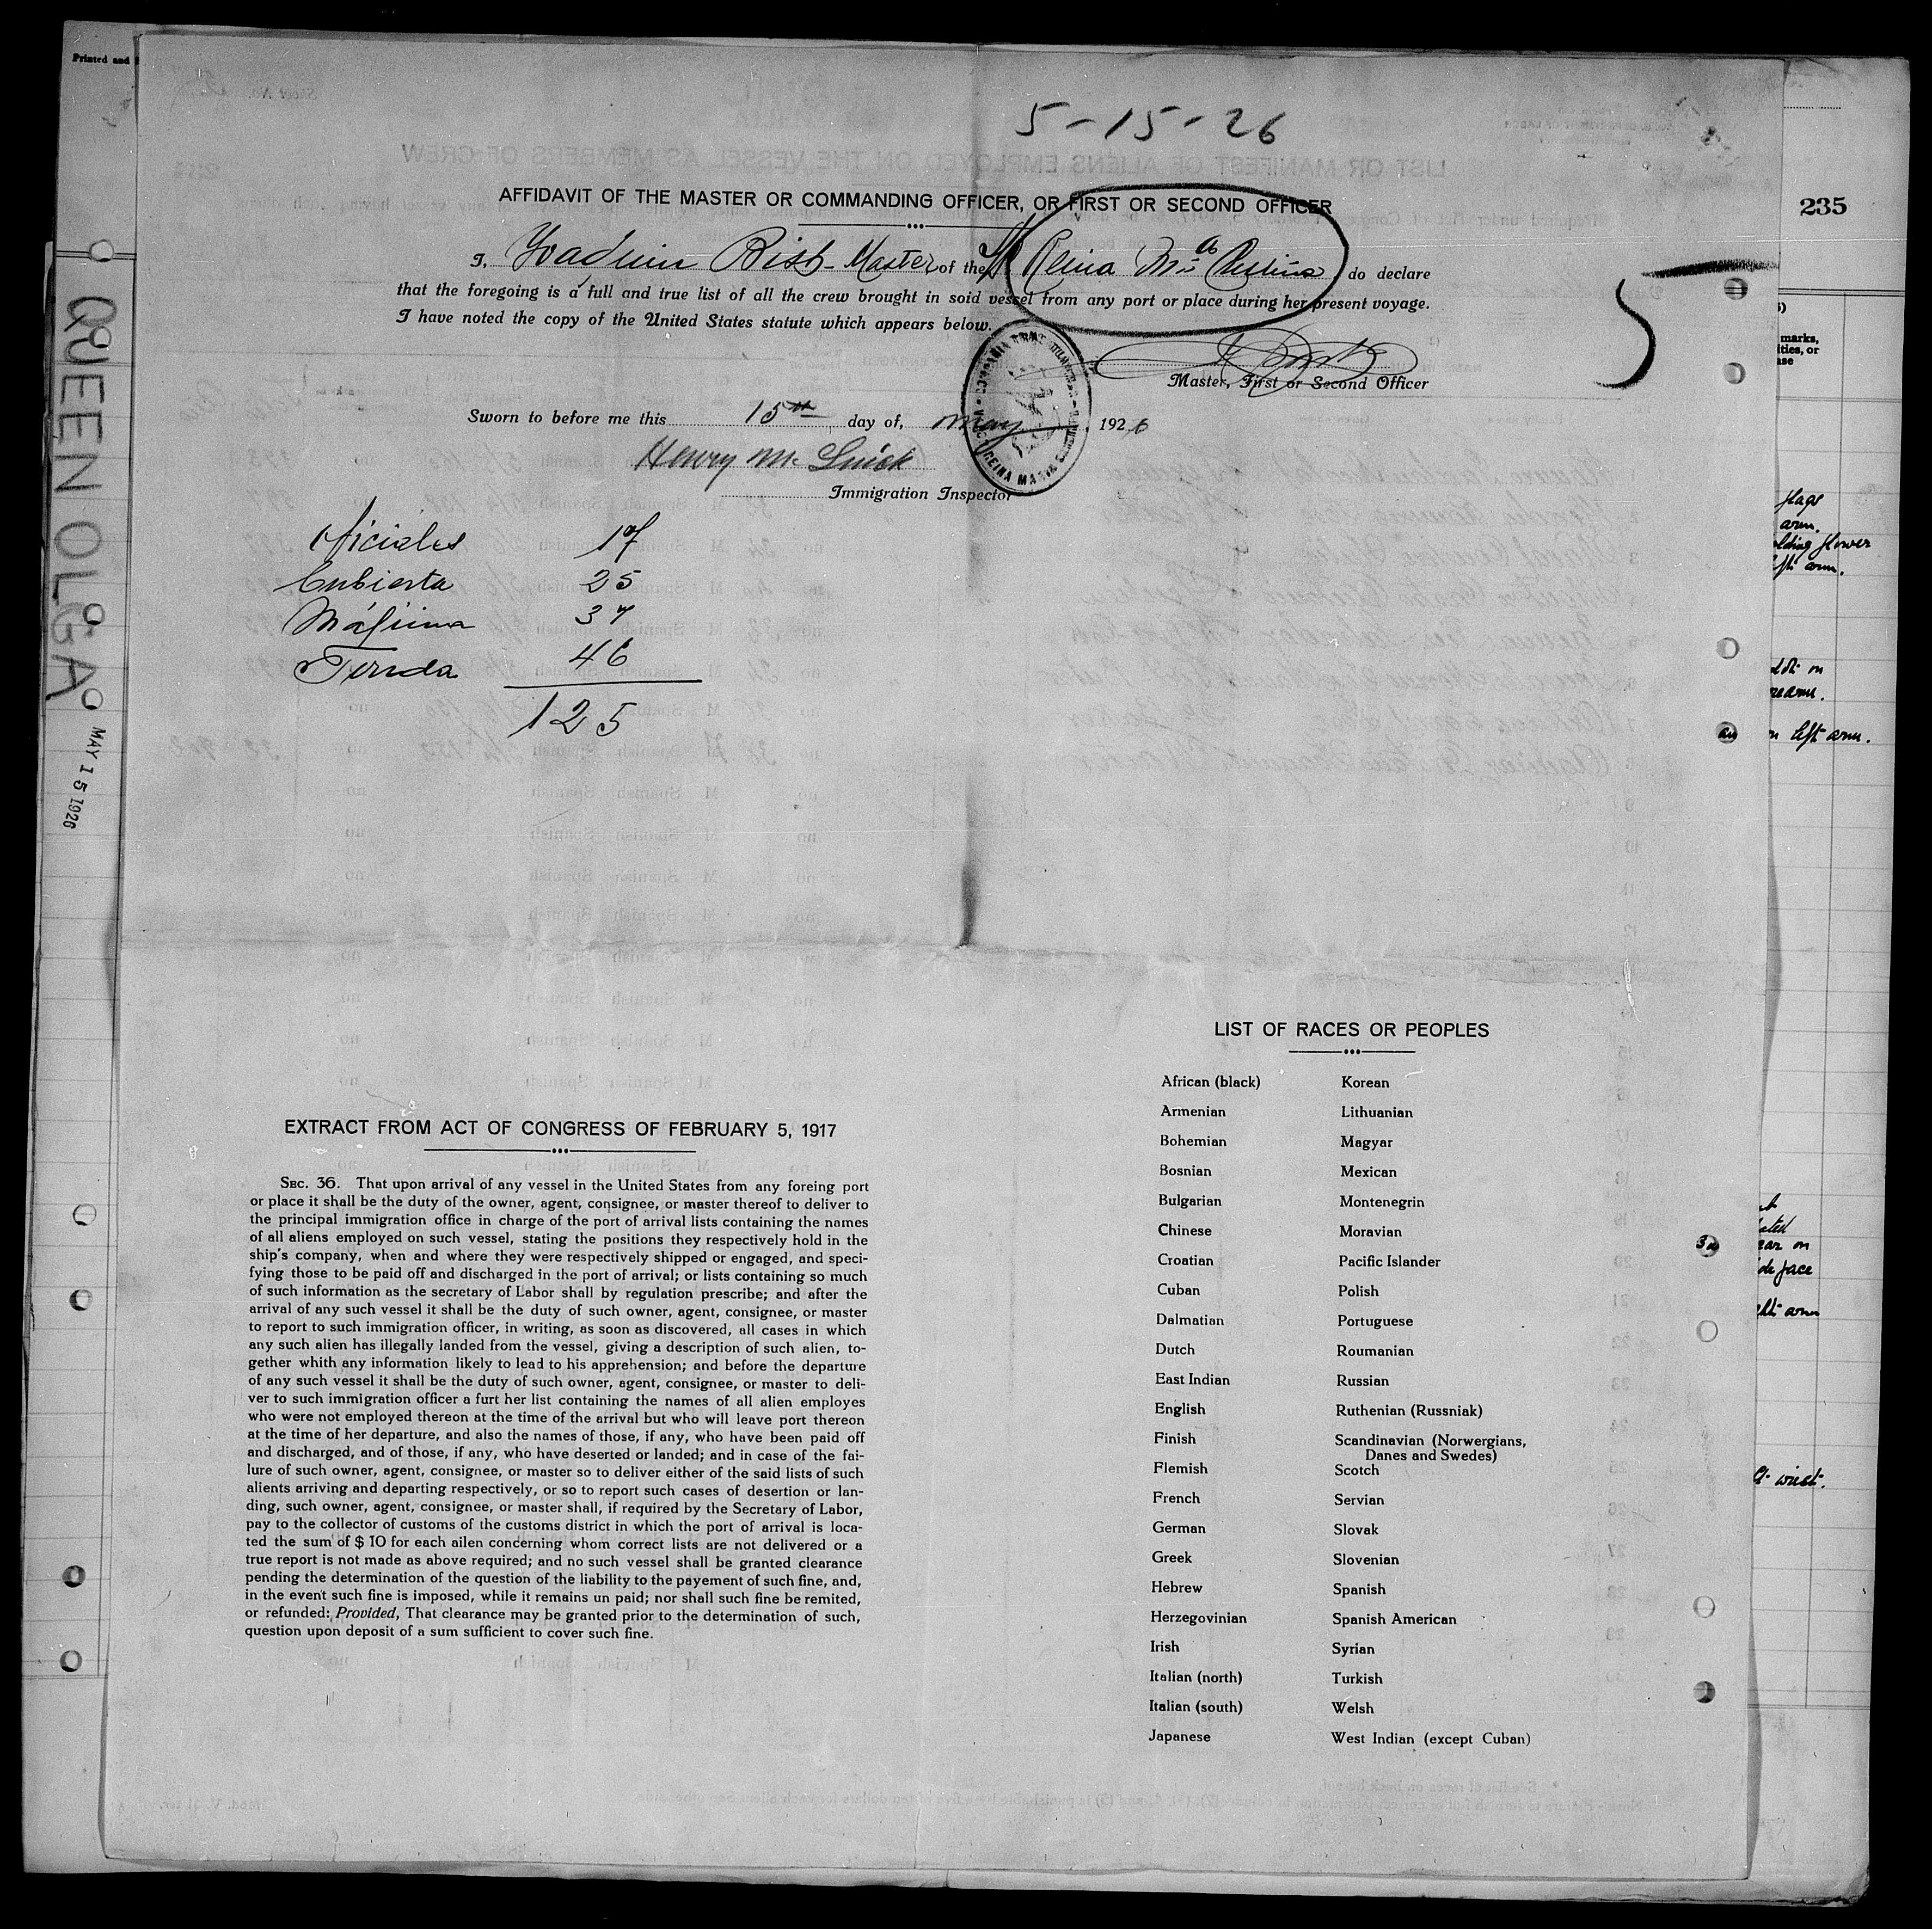 Printed and
5-15-26
235
AFFIDAVIT OF THE MASTER OR COMMANDING OFFICER, OR FIRST OR SECOND OFFICER
I, Master of the Reina do declare
that the foregoing is a full and true list of all the crew brought in soid vessel from any port or place during her present voyage.
I have noted the copy of the United States statute which appears below.
5
Master, First or Second Officer
Sworn to before me this 15th day of, May, 1926
Henry M.
Immigration Inspector
REINA MARIA
Oficiales 17
Cubierta 25
Máquina 37
Fonda 46
125
QUEEN OLGA
MAY 15 1926
marks,
flags
arm.
flower
arm.
on
left arm.
on
face
arm
wrist.
LIST OF RACES OR PEOPLES
African (black) Korean
Armenian Lithuanian
Bohemian Magyar
Bosnian Mexican
Bulgarian Montenegrin
Chinese Moravian
Croatian Pacific Islander
Cuban Polish
Dalmatian Portuguese
Dutch Roumanian
East Indian Russian
English Ruthenian (Russniak)
Finish Scandinavian (Norwergians,
Danes and Swedes)
Flemish Scotch
French Servian
German Slovak
Greek Slovenian
Hebrew Spanish
Herzegovinian Spanish American
Irish Syrian
Italian (north) Turkish
Italian (south) Welsh
Japanese West Indian (except Cuban)
EXTRACT FROM ACT OF CONGRESS OF FEBRUARY 5, 1917
SEC. 36. That upon arrival of any vessel in the United States from any foreing port
or place it shall be the duty of the owner, agent, consignee, or master thereof to deliver to
the principal immigration office in charge of the port of arrival lists containing the names
of all aliens employed on such vessel, stating the positions they respectively hold in the
ship's company, when and where they were respectively shipped or engaged, and speci-
fying those to be paid off and discharged in the port of arrival; or lists containing so much
of such information as the secretary of Labor shall by regulation prescribe; and after the
arrival of any such vessel it shall be the duty of such owner, agent, consignee, or master
to report to such immigration officer, in writing, as soon as discovered, all cases in which
any such alien has illegally landed from the vessel, giving a description of such alien, to-
gether whith any information likely to lead to his apprehension; and before the departure
of any such vessel it shall be the duty of such owner, agent, consignee, or master to deli-
ver to such immigration officer a furt her list containing the names of all alien employes
who were not employed thereon at the time of the arrival but who will leave port thereon
at the time of her departure, and also the names of those, if any, who have been paid off
and discharged, and of those, if any, who have deserted or landed; and in case of the fai-
lure of such owner, agent, consignee, or master so to deliver either of the said lists of such
alients arriving and departing respectively, or so to report such cases of desertion or lan-
ding, such owner, agent, consignee, or master shall, if required by the Secretary of Labor,
pay to the collector of customs of the customs district in which the port of arrival is loca-
ted the sum of $ 10 for each ailen concerning whom correct lists are not delivered or a
true report is not made as above required; and no such vessel shall be granted clearance
pending the determination of the question of the liability to the payement of such fine, and,
in the event such fine is imposed, while it remains un paid; nor shall such fine be remited,
or refunded: Provided, That clearance may be granted prior to the determination of such,
question upon deposit of a sum sufficient to cover such fine.